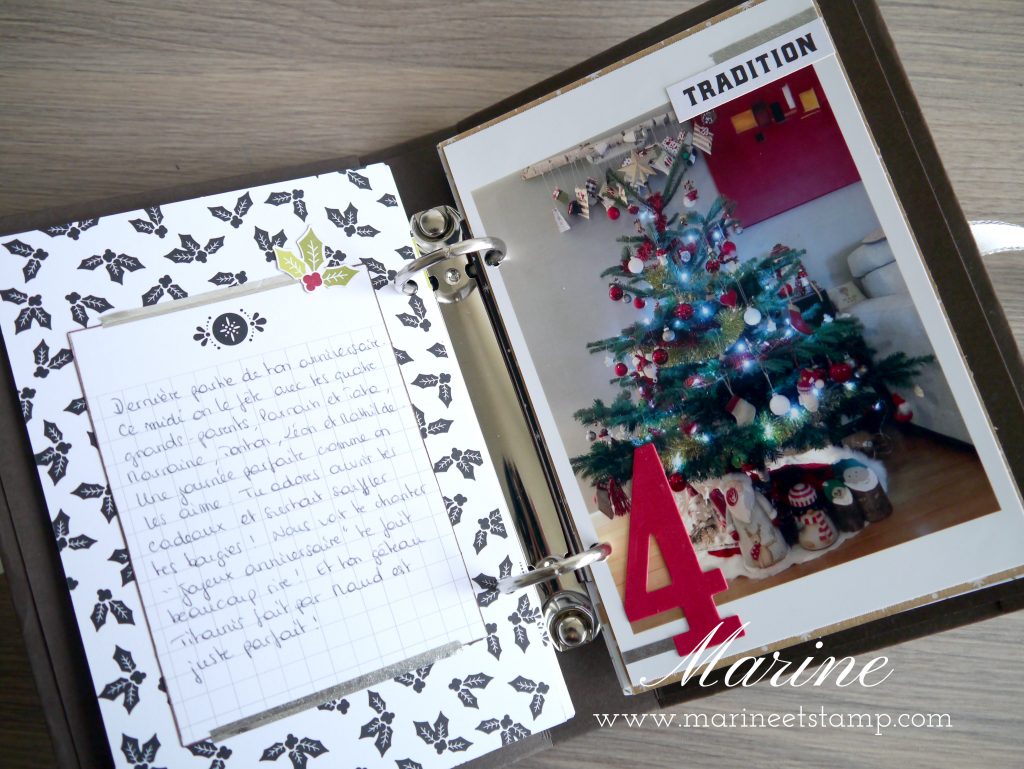 Dernière partie de ton anniversaire.
Ce midi on le fête avec tes quatre
grands-parents, Parrain et tata,
marraine, tonton, Léon et Mathilde.
Une journée parfaite comme on
les aime. Tu adores ouvrir tes
cadeaux et surtout souffler
tes bougies! Nous voir te chanter
"Joyeux anniversaire" te fait
beaucoup rire! Et ton gâteau
Titanic fait par Maud est
juste parfait!
TRADITION
4
Marine
www.marineetstamp.com